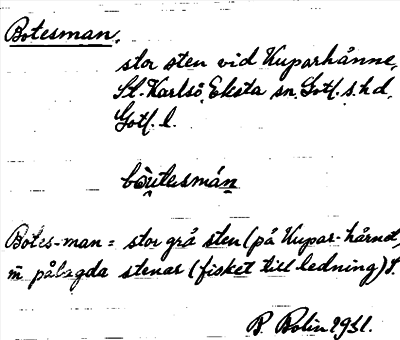 Botesman.
stor sten vid Kuparhånne,
St. Karlsö, Eksta sn. Gotl. s. hd,
Gotl. l.
bòutesmán
Botes-man = stor grå sten (på Kupar-hårnet,
m̄ pålagda stenar (fisket till ledning) S.
B. Bolin 1931.